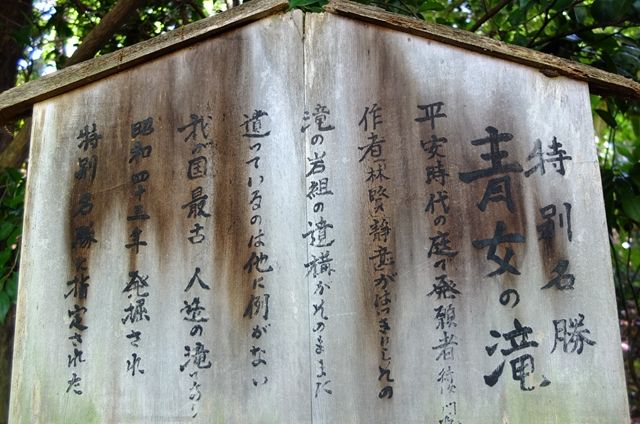 特別名勝
青女の滝
平安時代の庭で発願者待
作者林賢静意がはっきりしその
滝の岩組の遺構がそのままに
遺っているのは他に例がない
我が国最古 人造の滝であり
昭和四十三年 発掘され
特別名勝に指定された